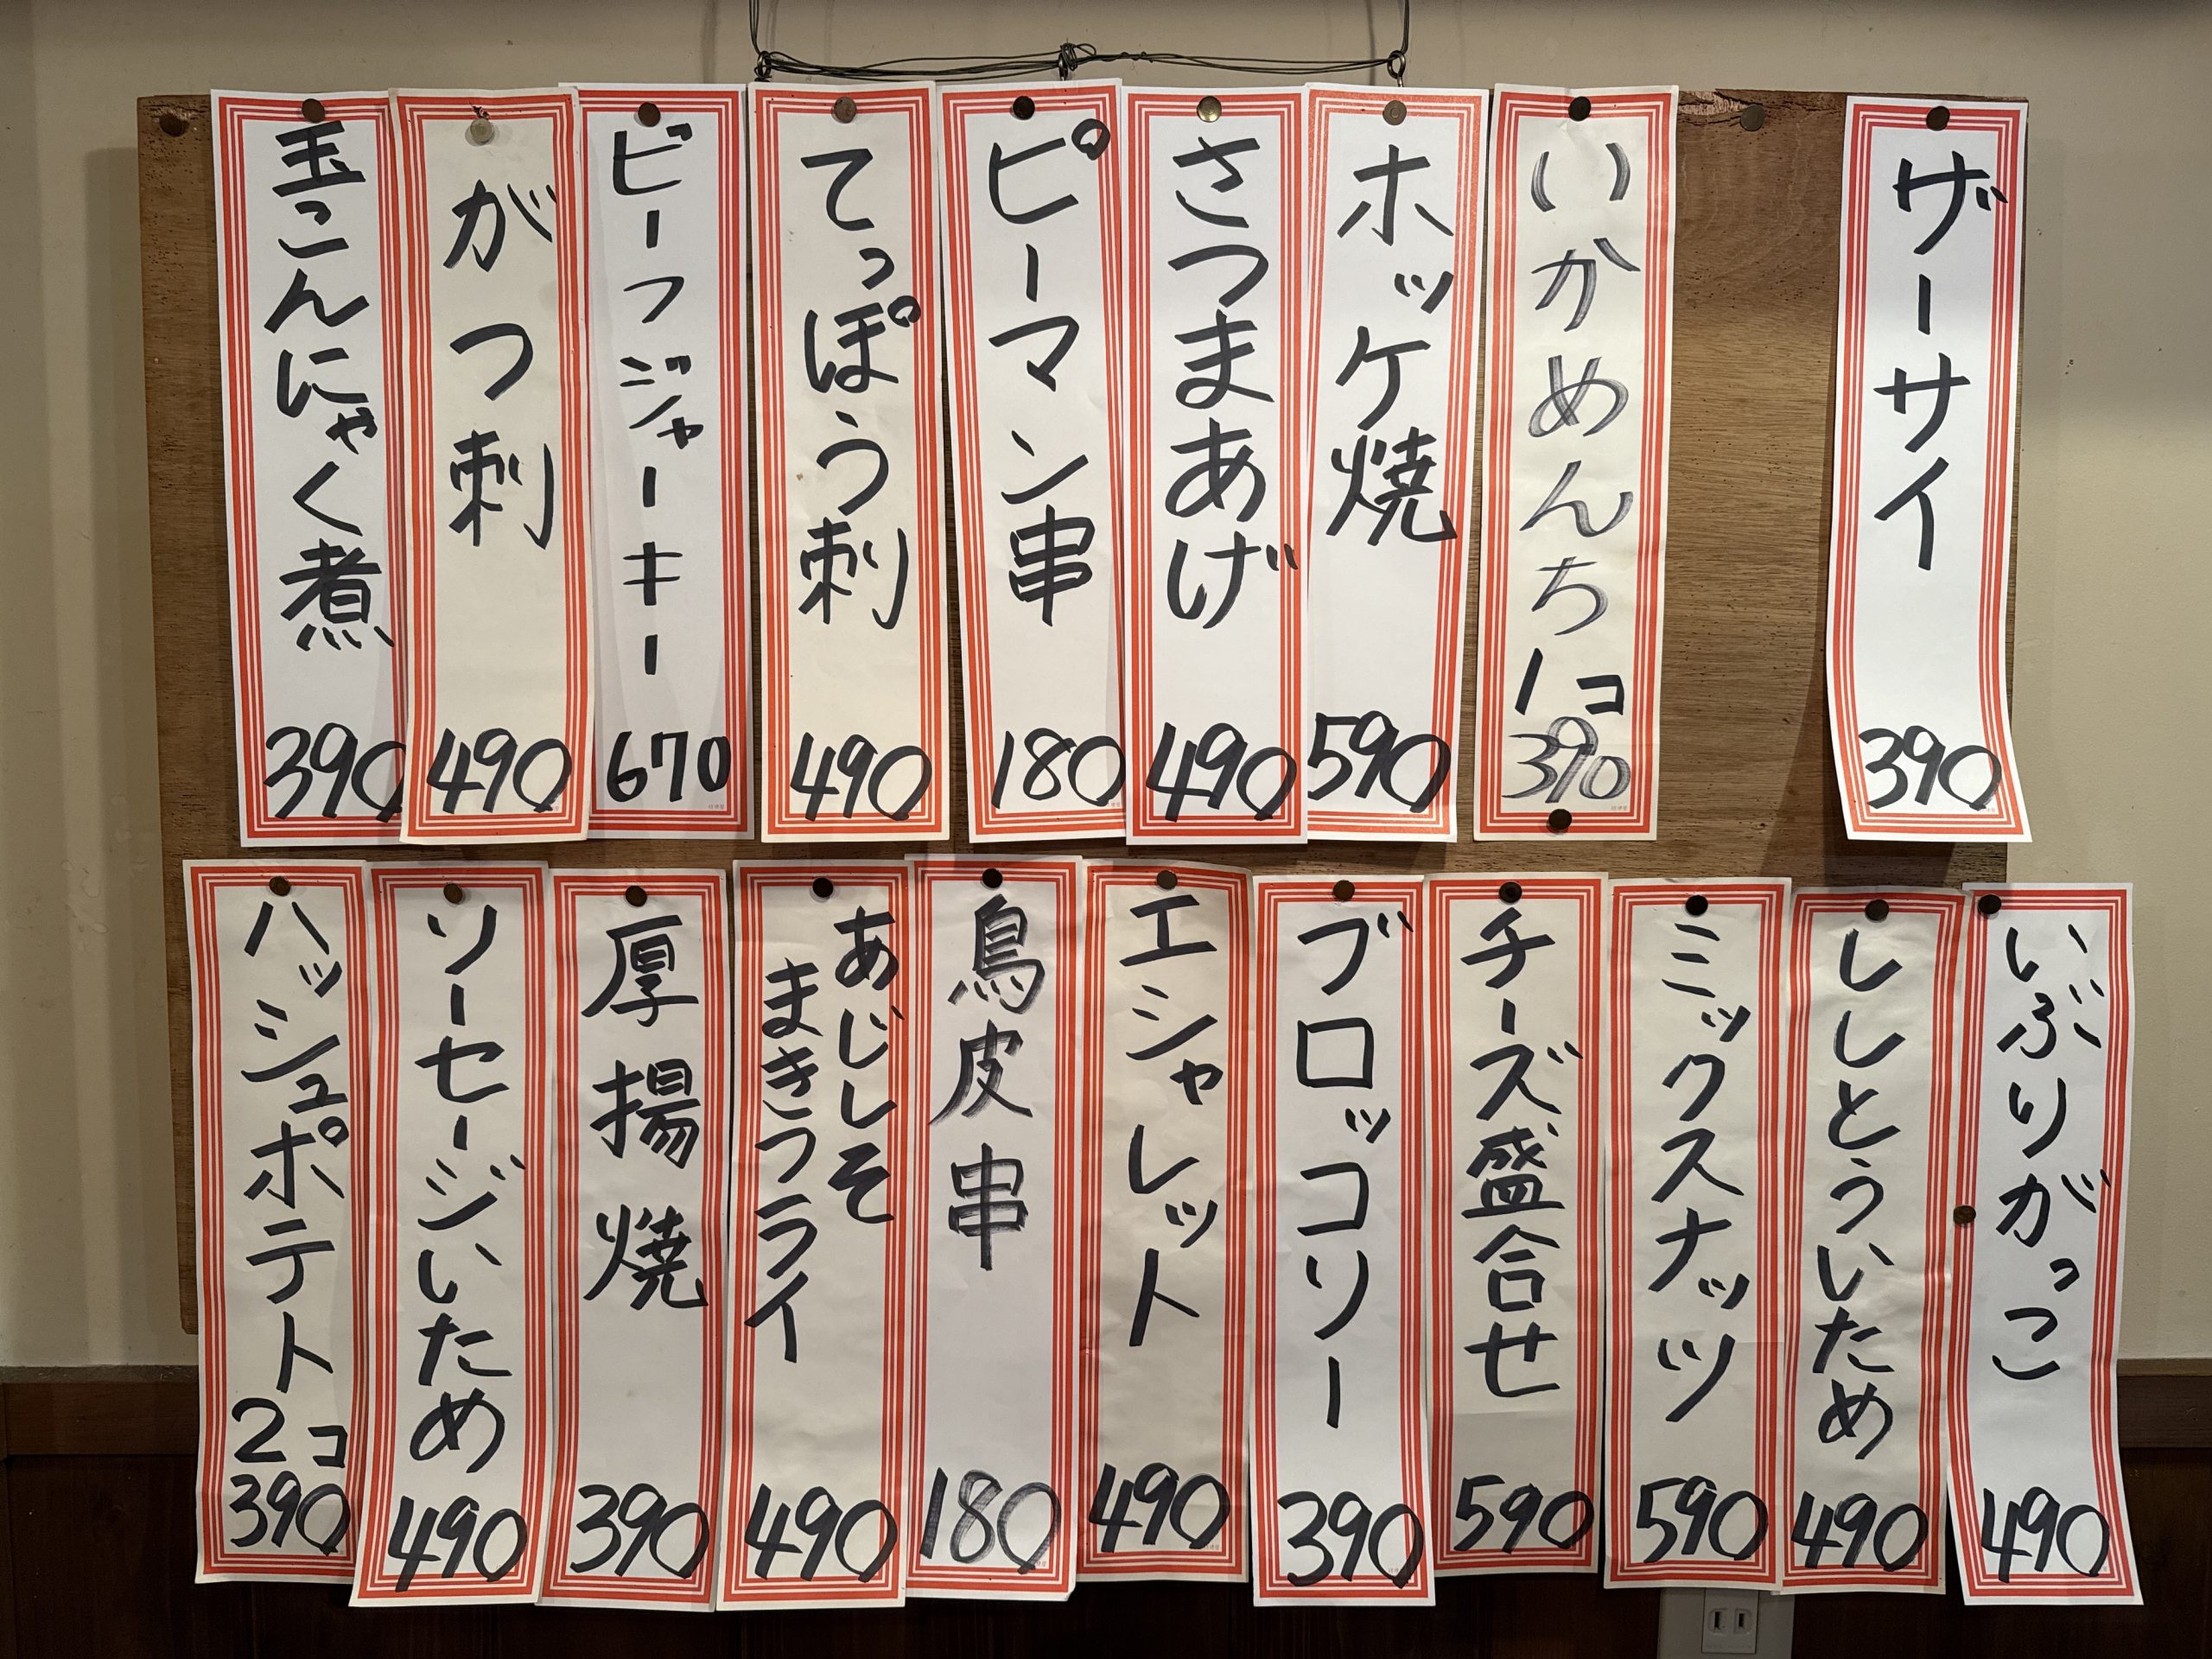 ザーサイ
390
いかめんち1コ
390
ホッケ焼
590
さつまあげ
490
ピーマン串
180
てっぽう刺
490
ビーフジャーキー
670
がつ刺
490
玉こんにゃく煮
390
いぶりがっこ
490
ししとういため
490
ミックスナッツ
590
チーズ盛合せ
590
ブロッコリー
390
エシャレット
490
鳥皮串
180
あじしそ
まきフライ
490
厚揚焼
390
ソーセージいため
490
ハッシュポテト
2コ
390